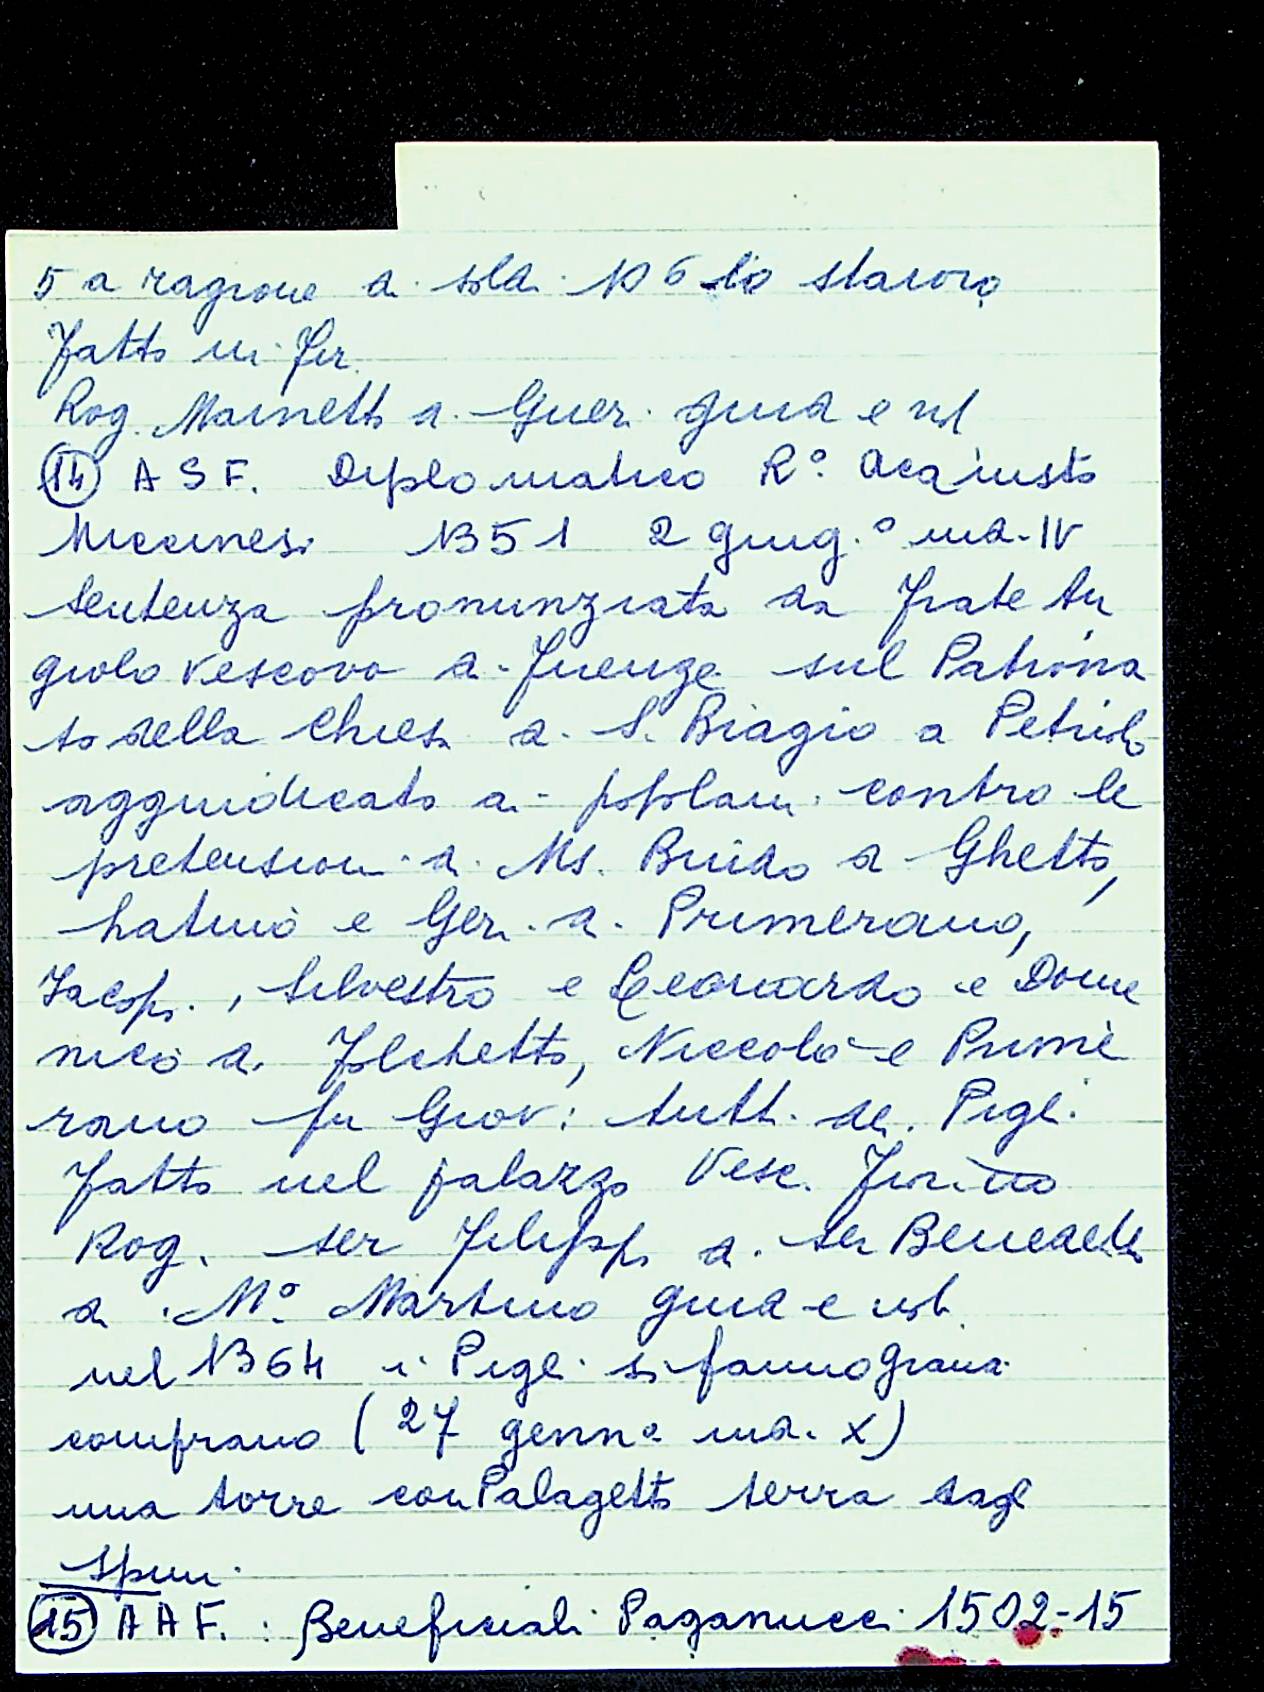 5 a ragione di sold. 10 6 lo staioro
Fatto in Fir.
Rog. Mainetto di Guer. giud e not
(14) A S F. Diplomatico R.° Acquisto
Miccinesi 1351 2 giug.° ind. IV
Sentenza pronunziata da Frate An
giolo Vescovo di Firenze sul Patrona
to della Chiesa di S. Biagio a Petriolo
aggiudicato ai popolani contro le
pretensioni di Ms. Guido di Ghetto,
Latino e Geri di Primerano,
Jacopo, Silvestro e Leonardo e Dome
nico di Folchetto, Niccolò e Prime
rano fu Giov: tutti dei Pigli
Fatto nel palazzo Vesc. Fior.tino
Rog. ser Filippo di ser Benedetto
di M.° Martino giud e not.
nel 1364 i Pigli si fanno grandi
comprano (27 genn° ind. X)
una torre con Palagetto terra dagl
Spini.
(15) A A F. : Beneficiali Paganucci 1502-15